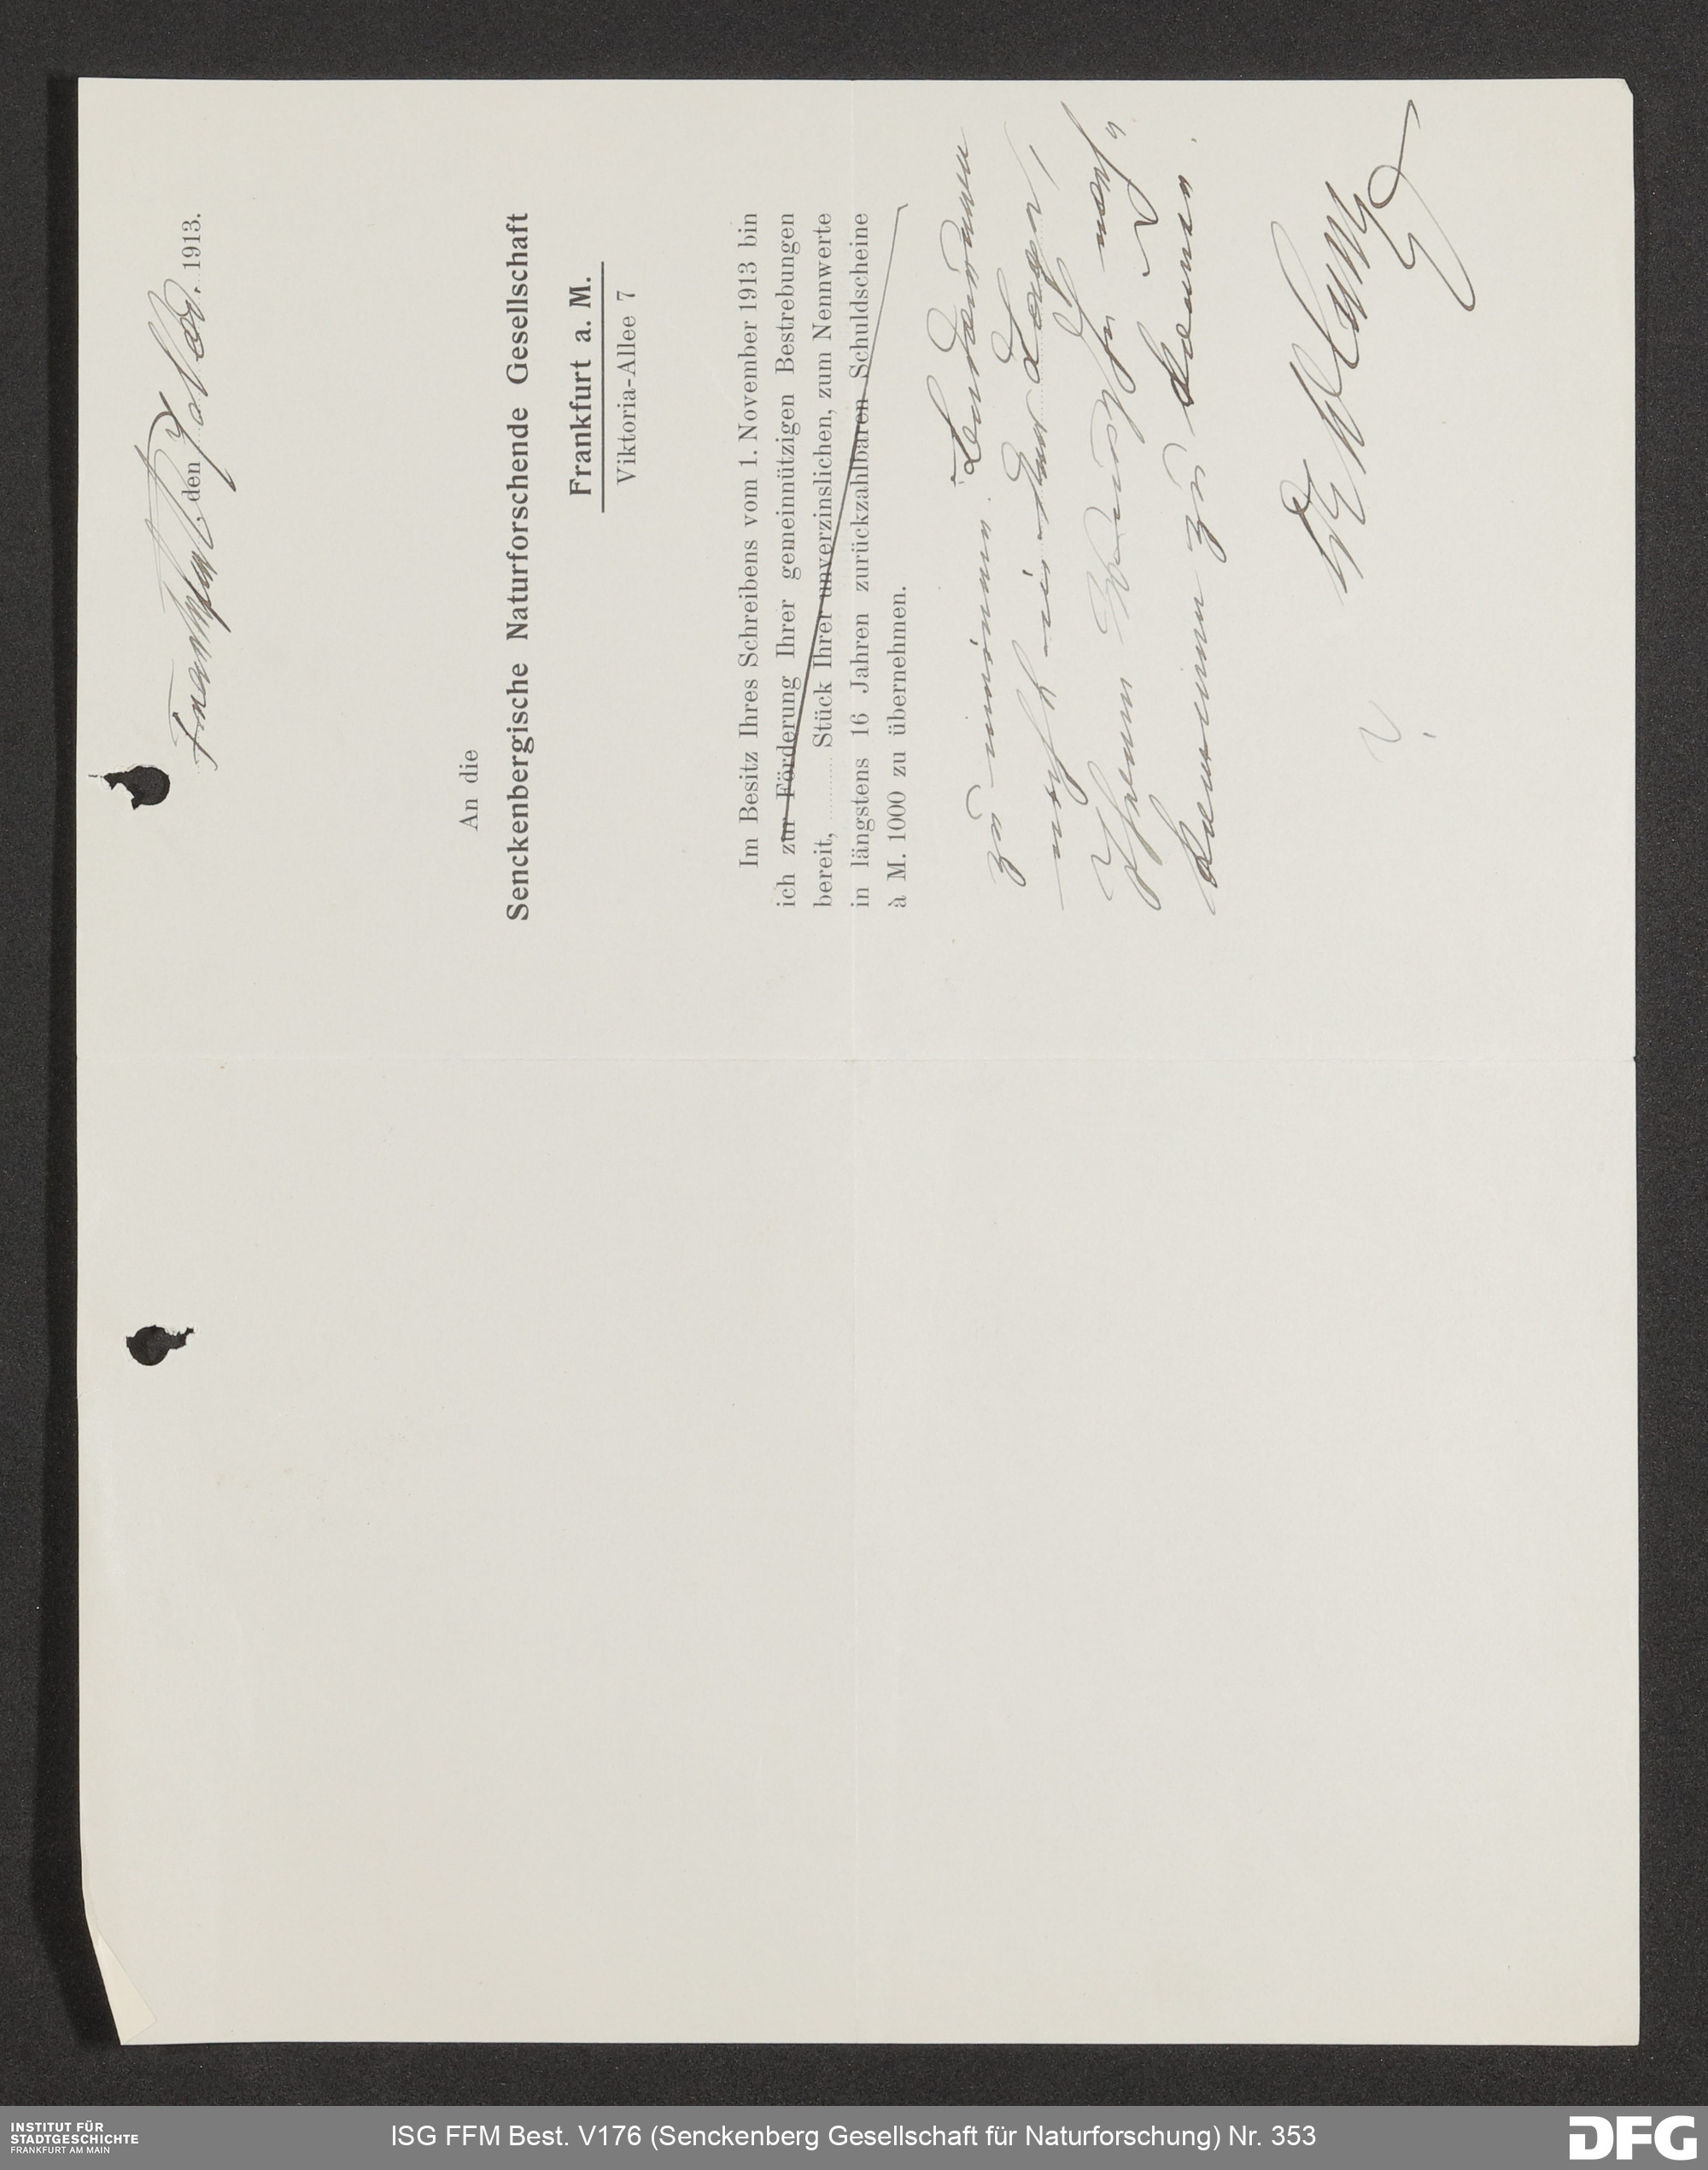 Frankfurt, den 7. Nov. 1913.
An die
Senckenbergische Naturforschende Gesellschaft
Frankfurt a. M.
Viktoria-Allee 7
Im Besitz Ihres Schreibens vom 1. November 1913 bin
ich zur Förderung Ihrer gemeinnützigen Bestrebungen
bereit, ............ Stück Ihrer unverzinslichen, zum Nennwerte
in längstens 16 Jahren zurückzahlbaren Schuldscheine
à M. 1000 zu übernehmen.
zu meinem Bedauern
nicht in der Lage,
Ihrem Wunsche nach-
kommen zu können.
INSTITUT FÜR
STADTGESCHICHTE
FRANKFURT AM MAIN
ISG FFM Best. V176 (Senckenberg Gesellschaft für Naturforschung) Nr. 353
DFG